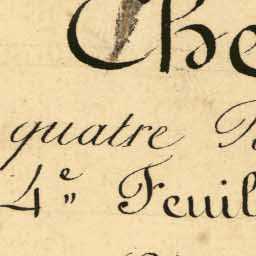 Che
quatre
4e Feuil